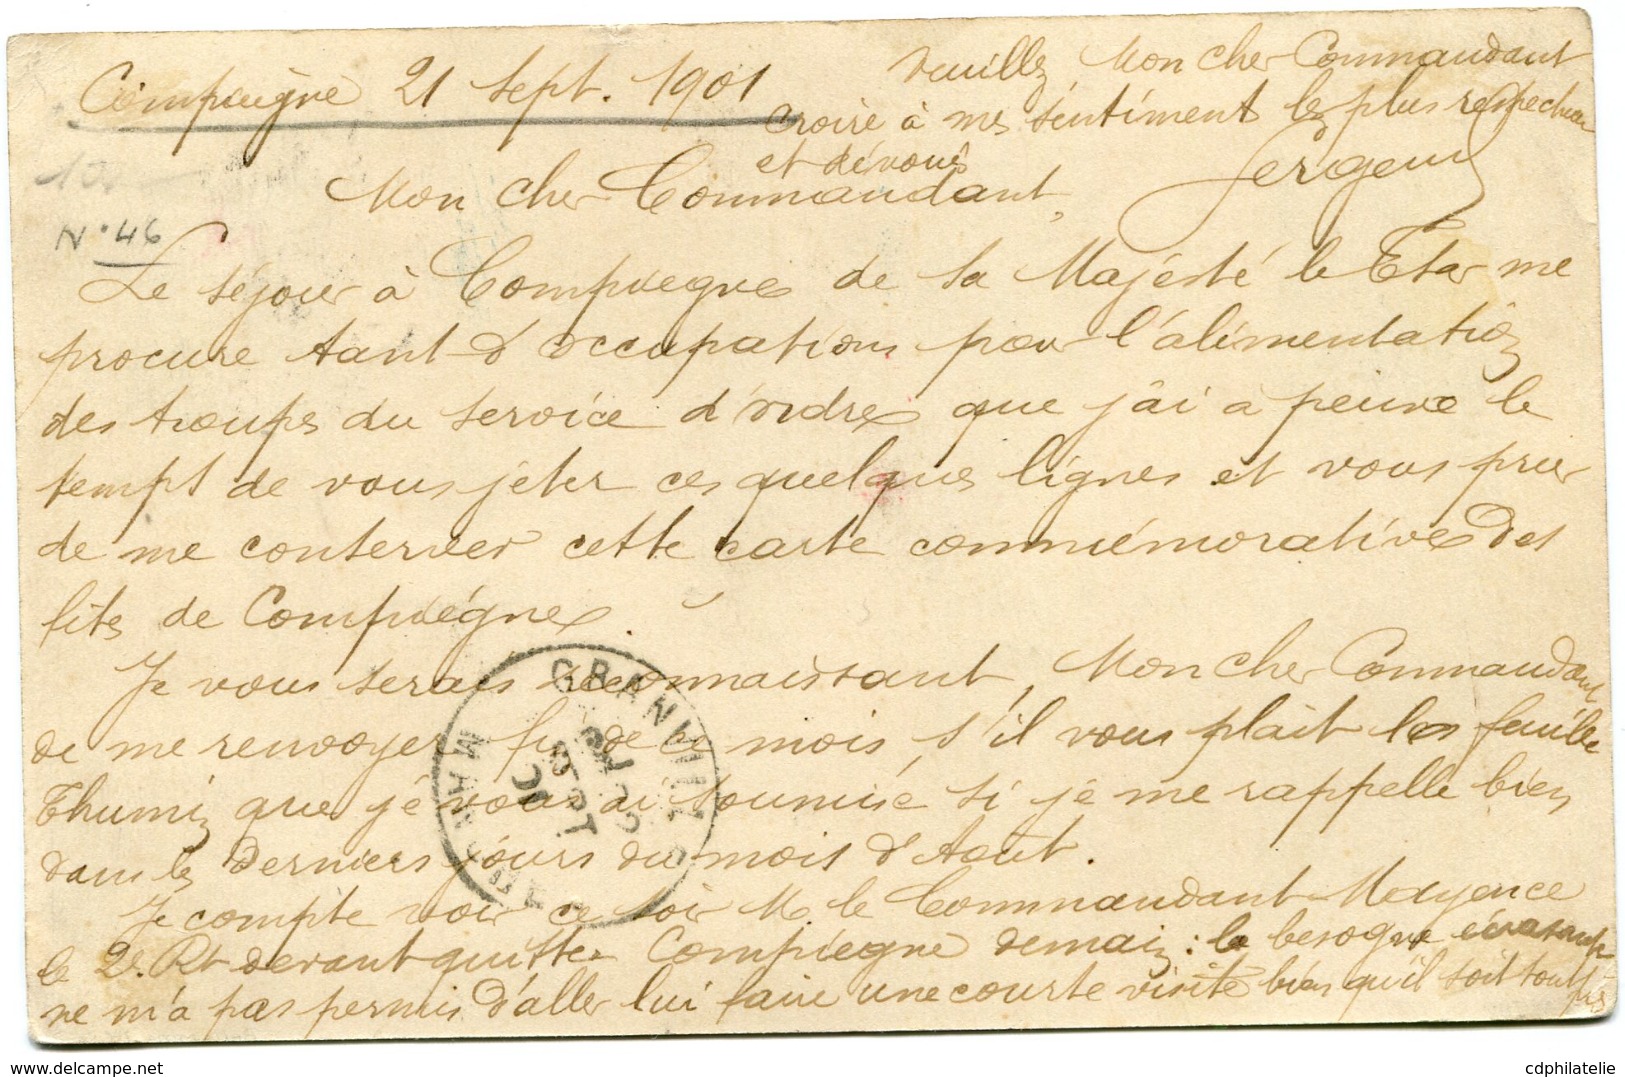 Compiègne 21 Sept. 1901
N° 46
Mon cher Commandant,
Le séjour à Compiegne de Sa Majésté le Tsar me
procure tant d'occupations pour l'alimentation
des troupes du service d'ordre que j'ai a peine le
tempt de vous jeter ces quelques lignes et vous prier
de me conserver cette carte commémorative des
fêtes de Compiégne.
Je vous serais reconnaissant, Mon cher Commandant
de me renvoyer fin de ce mois, s'il vous plait les feuilles
Thumin que je vous ai soumise si je me rappelle bien
dans les derniers jours du mois d'Août.
Je compte voir ce soir M. le Commandant Mayence
le 2e. Rt devant quitter Compiegne demain: la besogne écrasante
ne m'a pas permis d'aller lui faire une courte visite bien qu'il soit tout près
Veuillez Mon cher Commandant
croire à mes sentiment les plus respectueux
et dévoués
Sergent
GRANVILLE
MANCHE
SEPT
01
cdphilatelie
delcampe.net